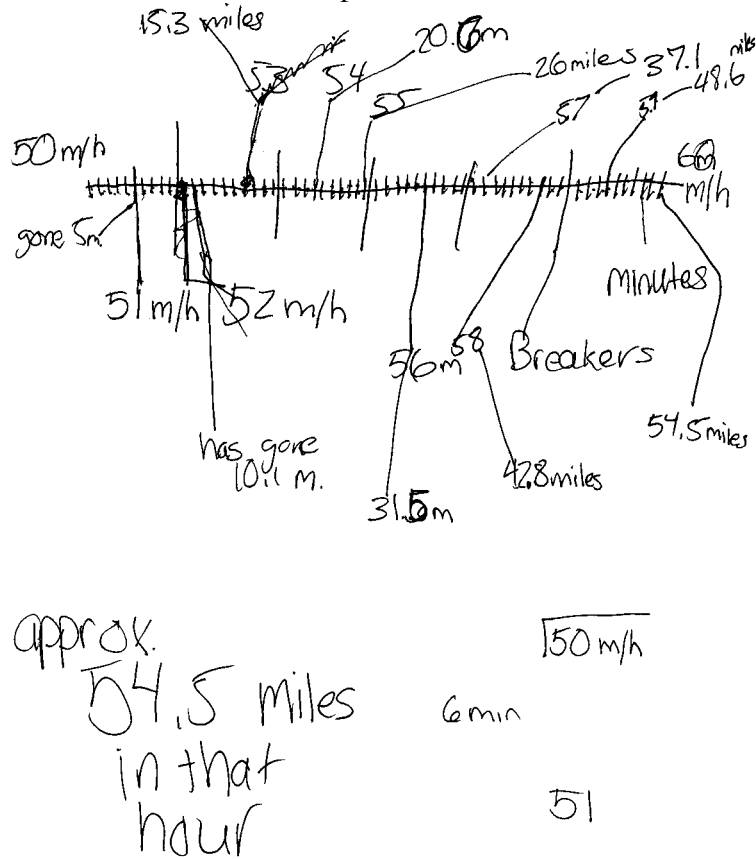 15.3 miles
20.6m
53
54
26 miles
37.1 miles
55
57
48.6
50 m/h
60 m/h
gone 5m
51 m/h
52 m/h
minutes
56m
58
Breakers
has gone
10.1 m.
54.5 miles
42.8 miles
31.5m
approx.
54.5 miles
in that
hour
50 m/h
6 min
51